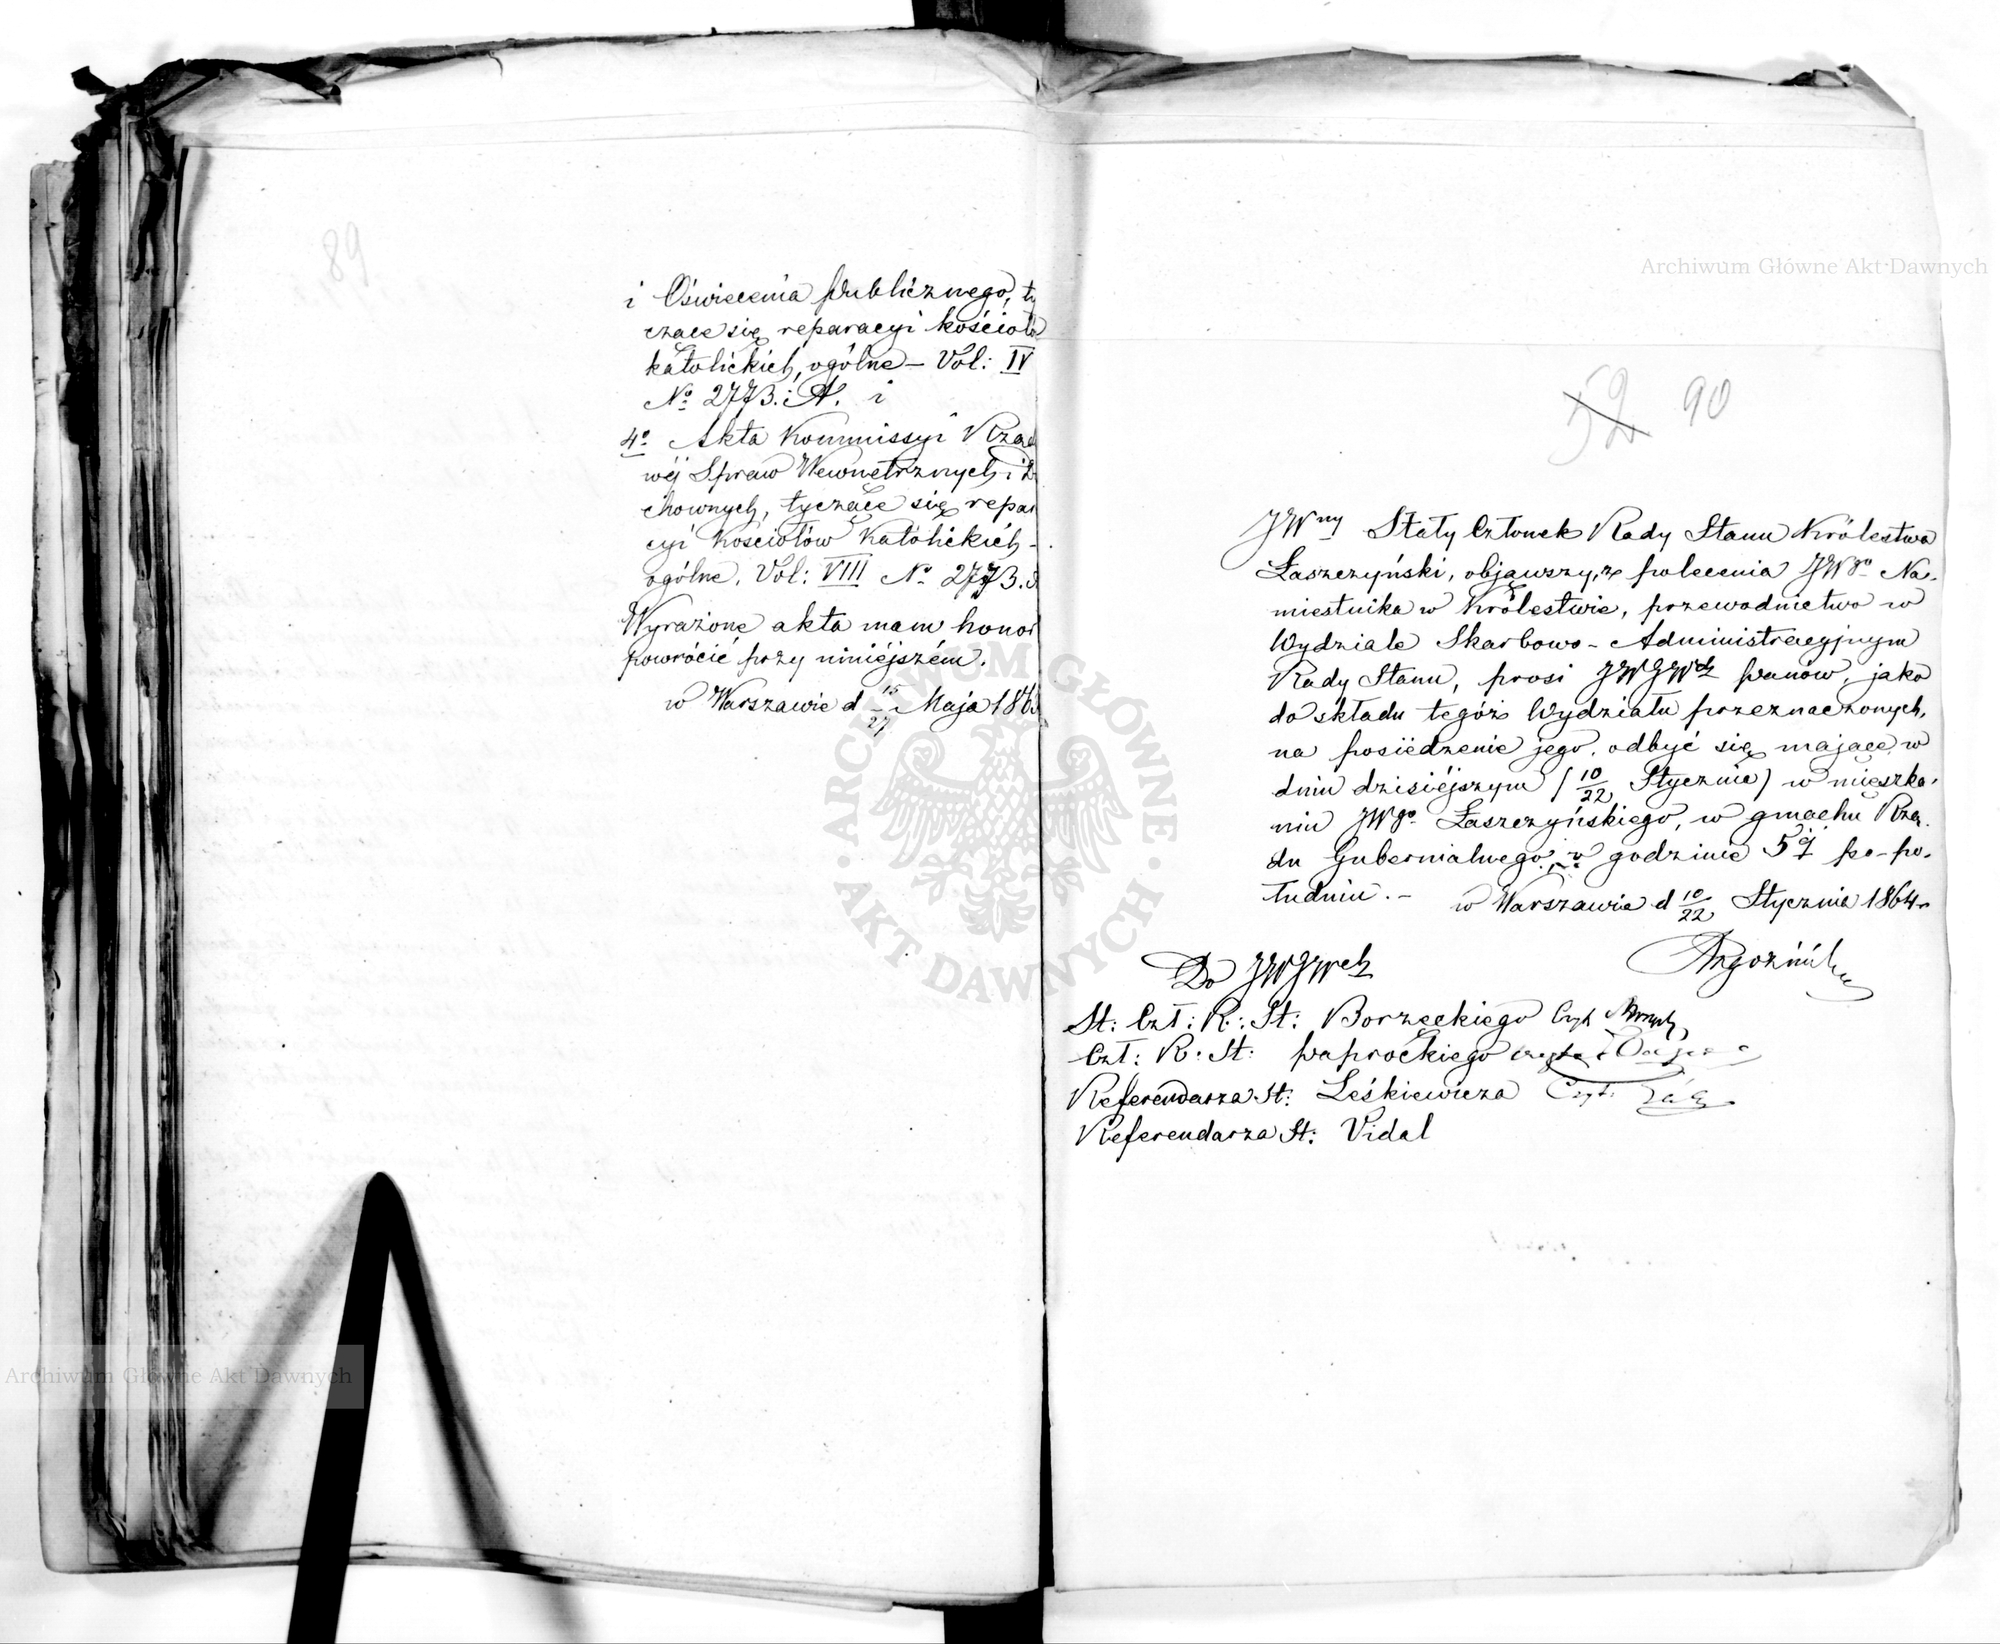 89
i Oświecenia Publicznego, ty
czące się reparacyi kościołó
katolickich, ogólne – Vol: IV
No 2773. A. i
4o Akta Kommissyi Rząd
wéj Spraw Wewnętrznych i D
chownych, tyczące się repar
cyi Kościołów Katolickich –
ogólne, Vol: VIII No 2773.
Wyrażone akta mam honor
powrócić przy niniéjszém.
w Warszawie d 15/27 Maja 186
Archiwum Główne Akt Dawnych
52 90
JWny Stały Członek Rady Stanu Królestwa
Łaszczyński, objąwszy, z polecenia JWgo Na-
miestnika w Królestwie, przewodnictwo w
Wydziale Skarbowo-Administracyjnym
Rady Stanu, prosi JWJWch Panów, jako
do składu tegóż Wydziału przeznaczonych,
na posiedzenie jego, odbyć się mające w
dniu dzisiéjszym (10/22 Stycznia) w mieszka-
niu JWgo Łaszczyńskiego, w gmachu Rzą-
du Gubernialnego, o godzinie 5éj po-po-
łudniu. –
w Warszawie d 10/22 Stycznia 1864 r
Do JWJWch
St: Czł: R: St: Borzęckiego
Czł: R: St: Paprockiego
Referendarza St: Leśkiewicza
Referendarza St: Vidal
ARCHIWUM GŁÓWNE AKT DAWNYCH
Archiwum Główne Akt Dawnych